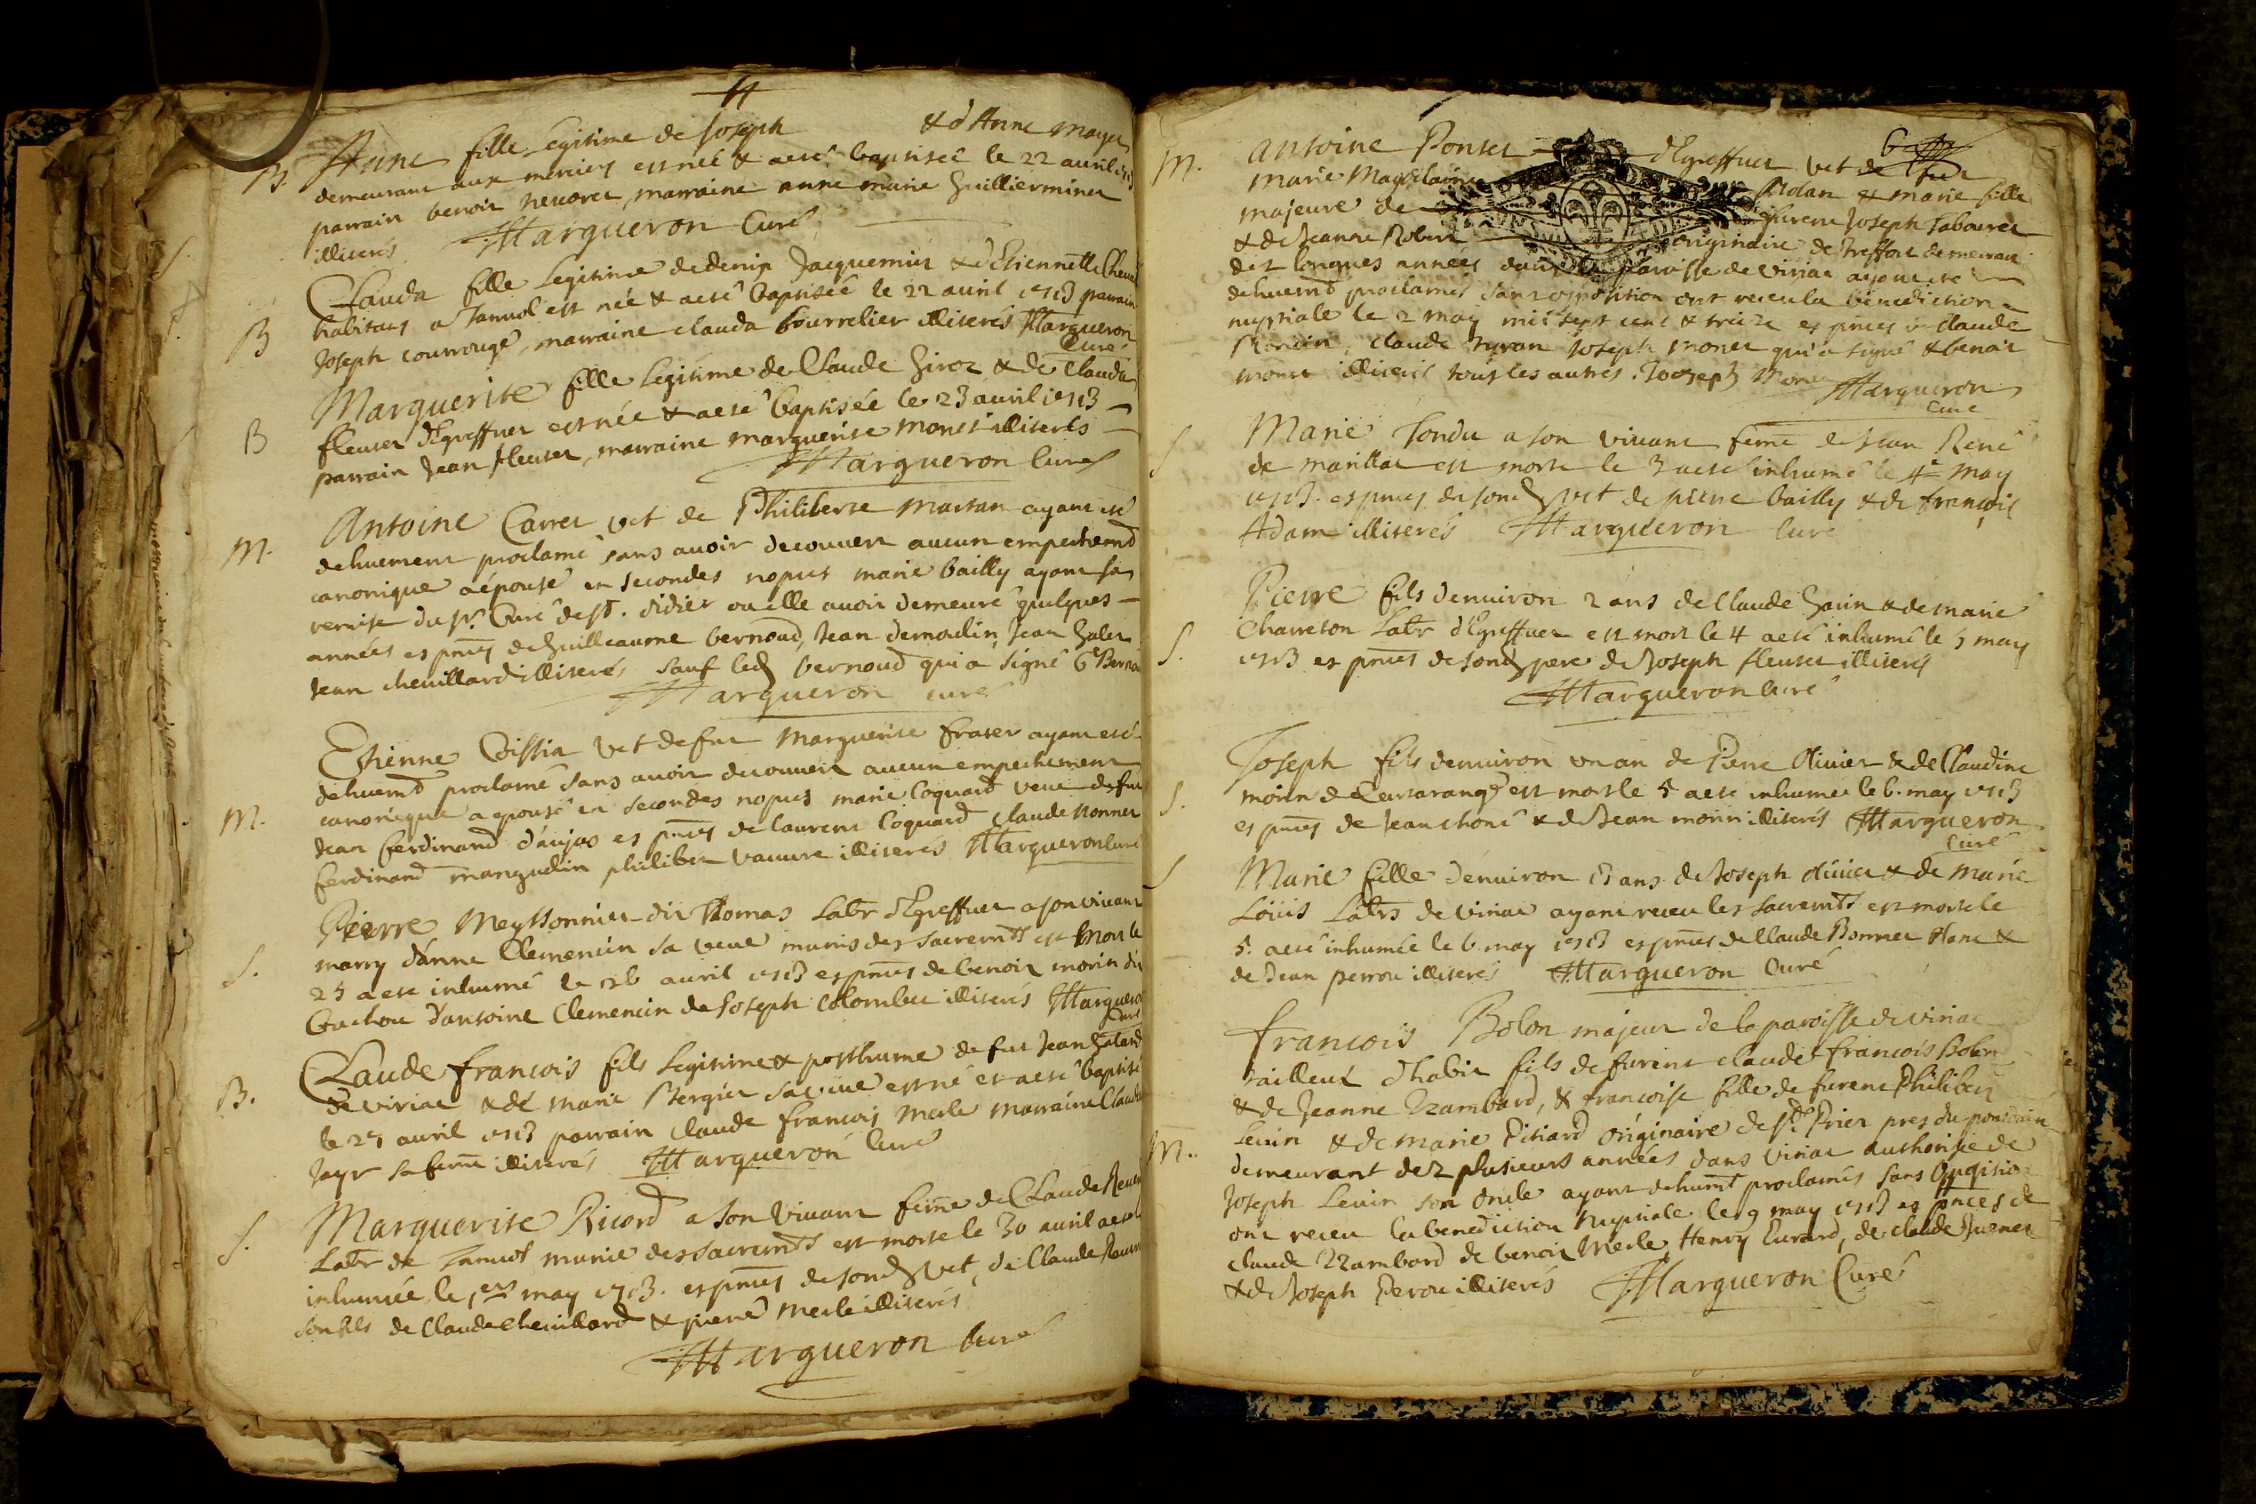 B. Anne fille Legitime de Joseph & d'Anne mayer
demeurant aux merciers est née & a esté baptisée le 22 avril 1713
parrain benoit marraine anne marie Guillierminet
illiterés Margueron Curé
B Clauda fille Legitime de denis Jacquemin & d'Etiennette
habitans a Tanuol est née & a esté baptisée le 22 avril 1713 parrain
Joseph courrouge, marraine clauda bourrelier illiterés Margueron
Curé
B Marguerite fille Legitime de Claude Giroz & de Clauda
fleuret d'Egreffuer est née & a esté baptisée le 23 avril 1713
parrain Jean fleuret, marraine marguerite monet illiterés
Margueron Curé
M. Antoine Carret vet de Philiberte martan ayant esté
dehuement proclamé sans avoir decouvert aucun empechemt
canonique a épousé en secondes nopces marie bailly ayant sa
remise du Sr. Curé de St. didier ou elle avoit demeuré quelques
années es pnces de Guilleaume bernoud, Jean demoulin, Jean
Jean chevillard illiterés sauf led bernoud qui a signé G Berno
Margueron curé
M. Etienne Coissia vet de fue Marguerite frater ayant esté
dehuemt proclamé sans avoir decouvert aucun empechement
canonique a épousé en secondes nopces marie Coquard veue de fut
Jean ferdinand d'anjas es pnces de laurent Coquard claude monnet
ferdinand manguelin philibert vauure illiterés Margueron Curé
S. Pierre Meyssonnier dit Thomas Labr d'Egreffuer a son vivant
marry d'anne Clemencin sa veue munis des sacremts est mort le
25 a esté inhumé le 26 avril 1713 es pnces de benoit morin dit
Gachou d'antoine Clemencin de Joseph colombet illiterés Margueron
Curé
B. Claude françois fils Legitime & posthume de fut Jean
de viriat & de marie Bergier sa veue est né et a esté baptisé
le 25 avril 1713 parrain claude françois merle marraine Clauda
Jayr sa feme illiterés Margueron Curé
S. Marguerite Ricord a son vivant feme de Claude
Labr de Tanuol munie des sacremts est morte le 30 avril a esté
inhumée le 1er may 1713. es pnces de sond vet, de Claude
son fils de Claude chevillard & pierre merle illiterés
Margueron Curé
M. Antoine Ponset d'Egreffuer vet de
marie Magdelaine Rolan & marie fille
majeure de furent Joseph Tabouret
& de Jeanne Robin originaire de Treffort demeurant
dez longues années dans la paroisse de viriat ayant esté
dehuemt proclamés sans opposition ont receu la benediction
nuptiale le 2 may mil sept cent & treize es pnces de claude
claude Joseph monet qui a signé & benoit
monet illiterés tous les autres. Joseph Monet Margueron
Curé
S Marie Tondu a son vivant feme de Jean René
de marillat est morte le 3 a esté inhumé le 4e may
1713. es pnces de sond vet de pierre bailly & de françois
Adam illiterés Margueron Curé
S. Pierre fils d'environ 2 ans de Claude Garin & de marie
Charreton Labr d'Egreffuer est mort le 4 a esté inhumé le 5 may
1713 es pnces de sond pere de Joseph fleuret illiterés
Margueron Curé
S. Joseph fils d'environ un an de Pierre Olivier & de Claudine
morin de est mort le 5 a esté inhumée le 6. may 1713
es pnces de Jean & de Jean morin illiterés Margueron
Curé
S Marie fille d'environ 13 ans de Joseph olivier & de marie
Loüis Labrs de viriat ayant receu les sacremts est morte le
5. a esté inhumée le 6 may 1713 es pnces de Claude Bonnet &
de Jean perrou illiterés Margueron Curé
M. françois Bolon majeur de la paroisse de viriat
tailleur d'habit fils de furent claude françois Bolon
& de Jeanne Zzambard, & francoise fille de furent Philibert
Levin & de marie Pitiard originaire de St. Prier pres du
demeurant dez plusieurs années dans viriat authorisée de
Joseph Levin son oncle ayant dehuemt proclamés sans opposition
ont receu la benediction Nuptiale le 9 may 1713 es pnces de
claude Zzambard de benoit Merle Henry Curard, de claude
& de Joseph Perou illiterés Margueron Curé